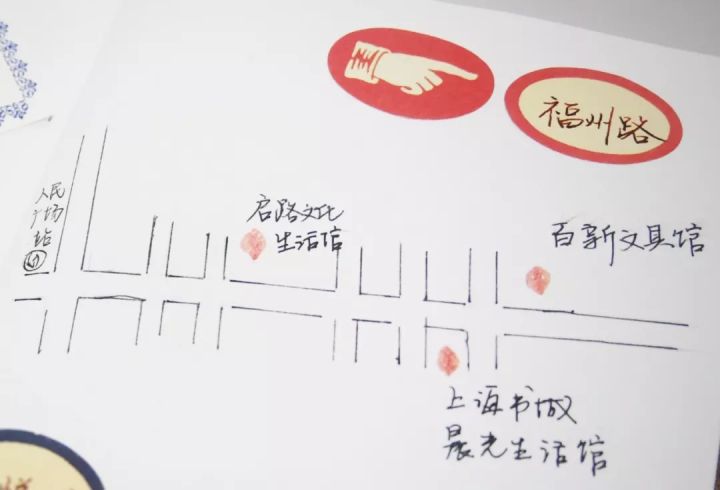 福州路
人民
广场
站
启路文化
生活馆
百新文具馆
上海书城
晨光生活馆